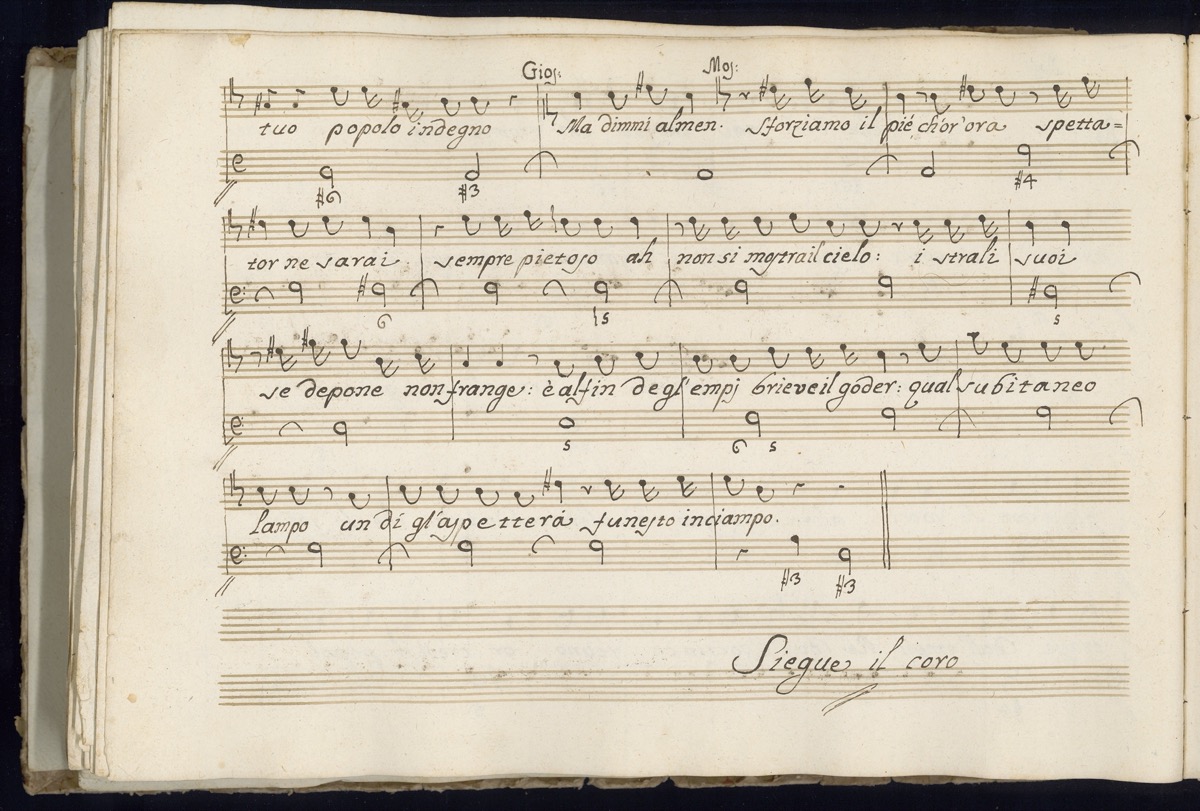 Gios: Mos:
tuo popolo indegno Ma dimmi almen. Sforziamo il pié ch'or'ora spetta=
#6 #3 #4
tor ne sarai. sempre pietoso ah non si mostra il cielo: i strali suoi
6 5 5
se depone non frange: è al fin degl'empj brieve il goder: qual subitaneo
5 6 5
lampo un dí gl'aspetterà funesto inciampo.
#3 #3
Siegue il coro